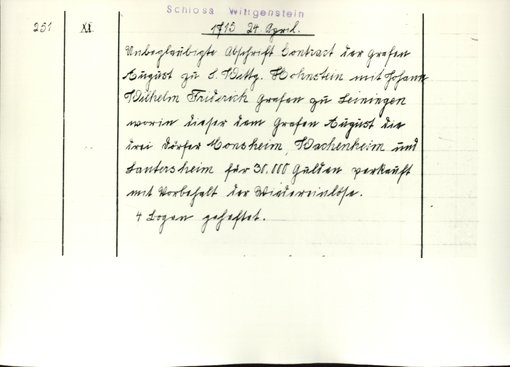 Schloss Wittgenstein
251 XI 1713 24 April.
Unbeglaubigte Abschrift Contract der Grafen
August zu S. Wittg. Hohnstein mit Johann
Wilhelm Friderich Grafen zu Leiningen
worin dieser dem Grafen August die
drei Dörfer Monsheim, Wachenheim und
Lautersheim für 30,000 Gulden verkauft
mit Vorbehalt der Wiedereinlöse.
4 Bogen geheftet.